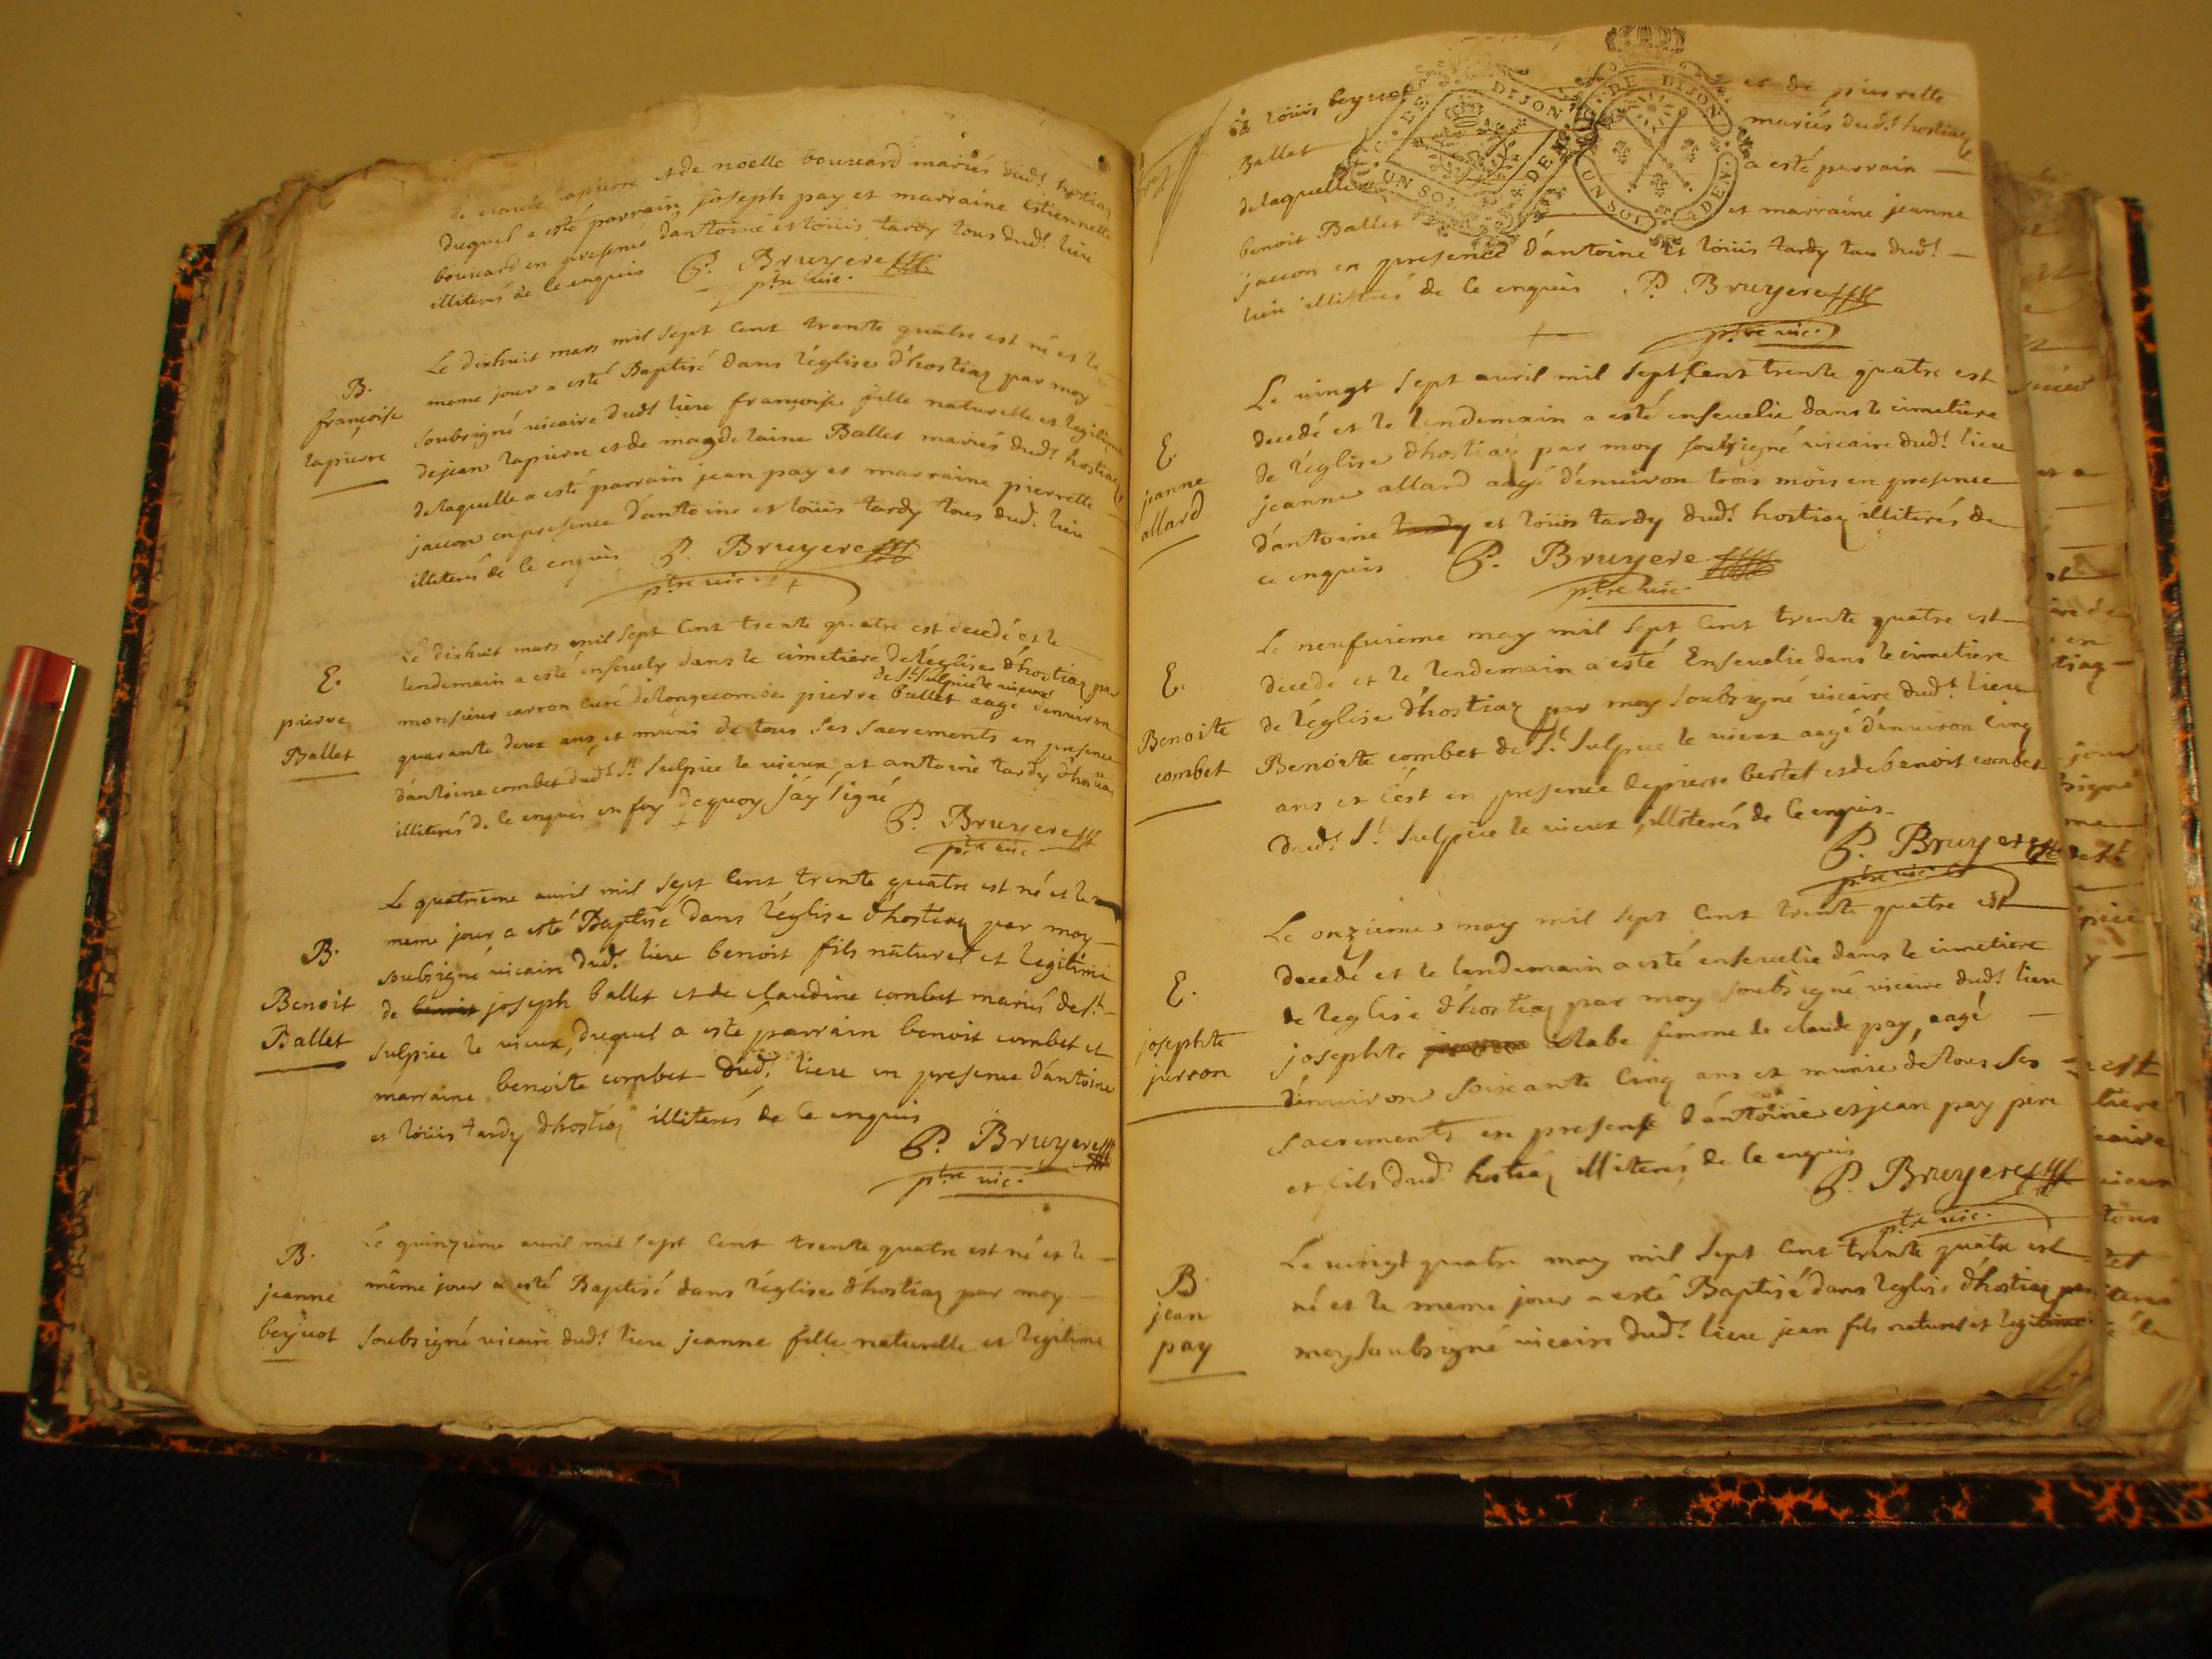 de claude lapierre et de noelle bouuard mariés dud.t hostiaz
duquel a esté parrain joseph pay et marraine estiennette
bouuard en presence d'antoine et loüis tardy tous dud.t lieu
illiterés de ce enquis P. Bruyere
ptre vic.
B.
françoise
lapierre
Le dixhuit mars mil sept cent trente quatre est né et le
meme jour a esté Baptisé dans l'église d'hostiaz par moy
soubsigné vicaire dud.t lieu françoise fille naturelle et legitime
de jean lapierre et de magdelaine Ballet mariés dud.t hostiaz
de laquelle a esté parrain jean pay et marraine pierrette
jacson en presence d'antoine et loüis tardy tous dud. lieu
illiterés de ce enquis P. Bruyere
ptre vic.
E.
pierre
Ballet
Le dixhuit mars mil sept cent trente quatre est decedé et le
lendemain a esté ensevely dans le cimetiere de l'église d'hostiaz par
de St Sulpice le vieux
monsieur carron curé de longecombe pierre ballet aagé d'enuiron
quarante deux ans et muni de tous ses sacrements en presence
d'antoine combet dud.t St Sulpice le vieux et antoine tardy d'hostiaz
illiterés de ce enquis en foy de quoy j'ay signé
P. Bruyere
ptre vic.
B.
Benoit
Ballet
Le quatrieme auril mil sept cent trente quatre est né et le
meme jour a esté Baptisé dans l'église d'hostiaz par moy
soubsigné vicaire dud.t lieu benoit fils naturel et legitime
de joseph ballet et de claudine combet mariés de St
sulpice le vieux, duquel a esté parrain benoit combet et
marraine benoite combet dud.t lieu en presence d'antoine
et loüis tardy d'hostiaz illiterés de ce enquis
P. Bruyere
ptre vic.
B.
jeanne
beyuot
Le quinzieme auril mil sept cent trente quatre est né et le
même jour a esté Baptisé dans l'église d'hostiaz par moy
soubsigné vicaire dud.t lieu jeanne fille naturelle et legitime
de loüis beyuot et de pierrette
Ballet mariés dud.t hostiaz
de laquelle a esté parrain
benoit Ballet et marraine jeanne
jacson en presence d'antoine et loüis tardy tous dud.t
lieu illiterés de ce enquis P. Bruyere
ptre vic.
DIJON
UN SOL
DE DIJON
UN SOL 4 DEN
E.
jeanne
allard
Le vingt sept auril mil sept cent trente quatre est
decedé et le lendemain a esté enseuelie dans le cimetiere
de l'église d'hostiaz par moy soubsigné vicaire dud.t lieu
jeanne allard aagé d'enuiron trois mois en presence
d'antoine tardy et loüis tardy dud.t hostiaz illiterés de
ce enquis P. Bruyere
ptre vic.
E.
Benoite
combet
Le neufuieme may mil sept cent trente quatre est
decedé et le lendemain a esté Enseuelie dans le cimetiere
de l'église d'hostiaz par moy soubsigné vicaire dud.t lieu
Benoite combet de St Sulpice le vieux aagé d'enuiron cinq
ans et c'est en presence de pierre bertet et de benoit combet
dud.t St Sulpice le vieux illiterés de ce enquis.
P. Bruyere
ptre vic.
E.
josephte
Le onzieme may mil sept cent trente quatre est
decedé et le lendemain a esté enseuelie dans le cimetiere
de l'eglise d'hostiaz par moy soubsigné vicaire dud.t lieu
josephte femme de claude pay, aagé
d'enuiron soixante cinq ans et munie de tous ses
sacrements en presence d'antoine et jean pay pere
et fils dud.t hostiaz illiterés de ce enquis
P. Bruyere
ptre vic.
B.
jean
pay
Le vingt quatre may mil sept cent trente quatre est
né et le meme jour a esté Baptisé dans l'eglise d'hostiaz par
moy soubsigné vicaire dud.t lieu jean fils naturel et legitime